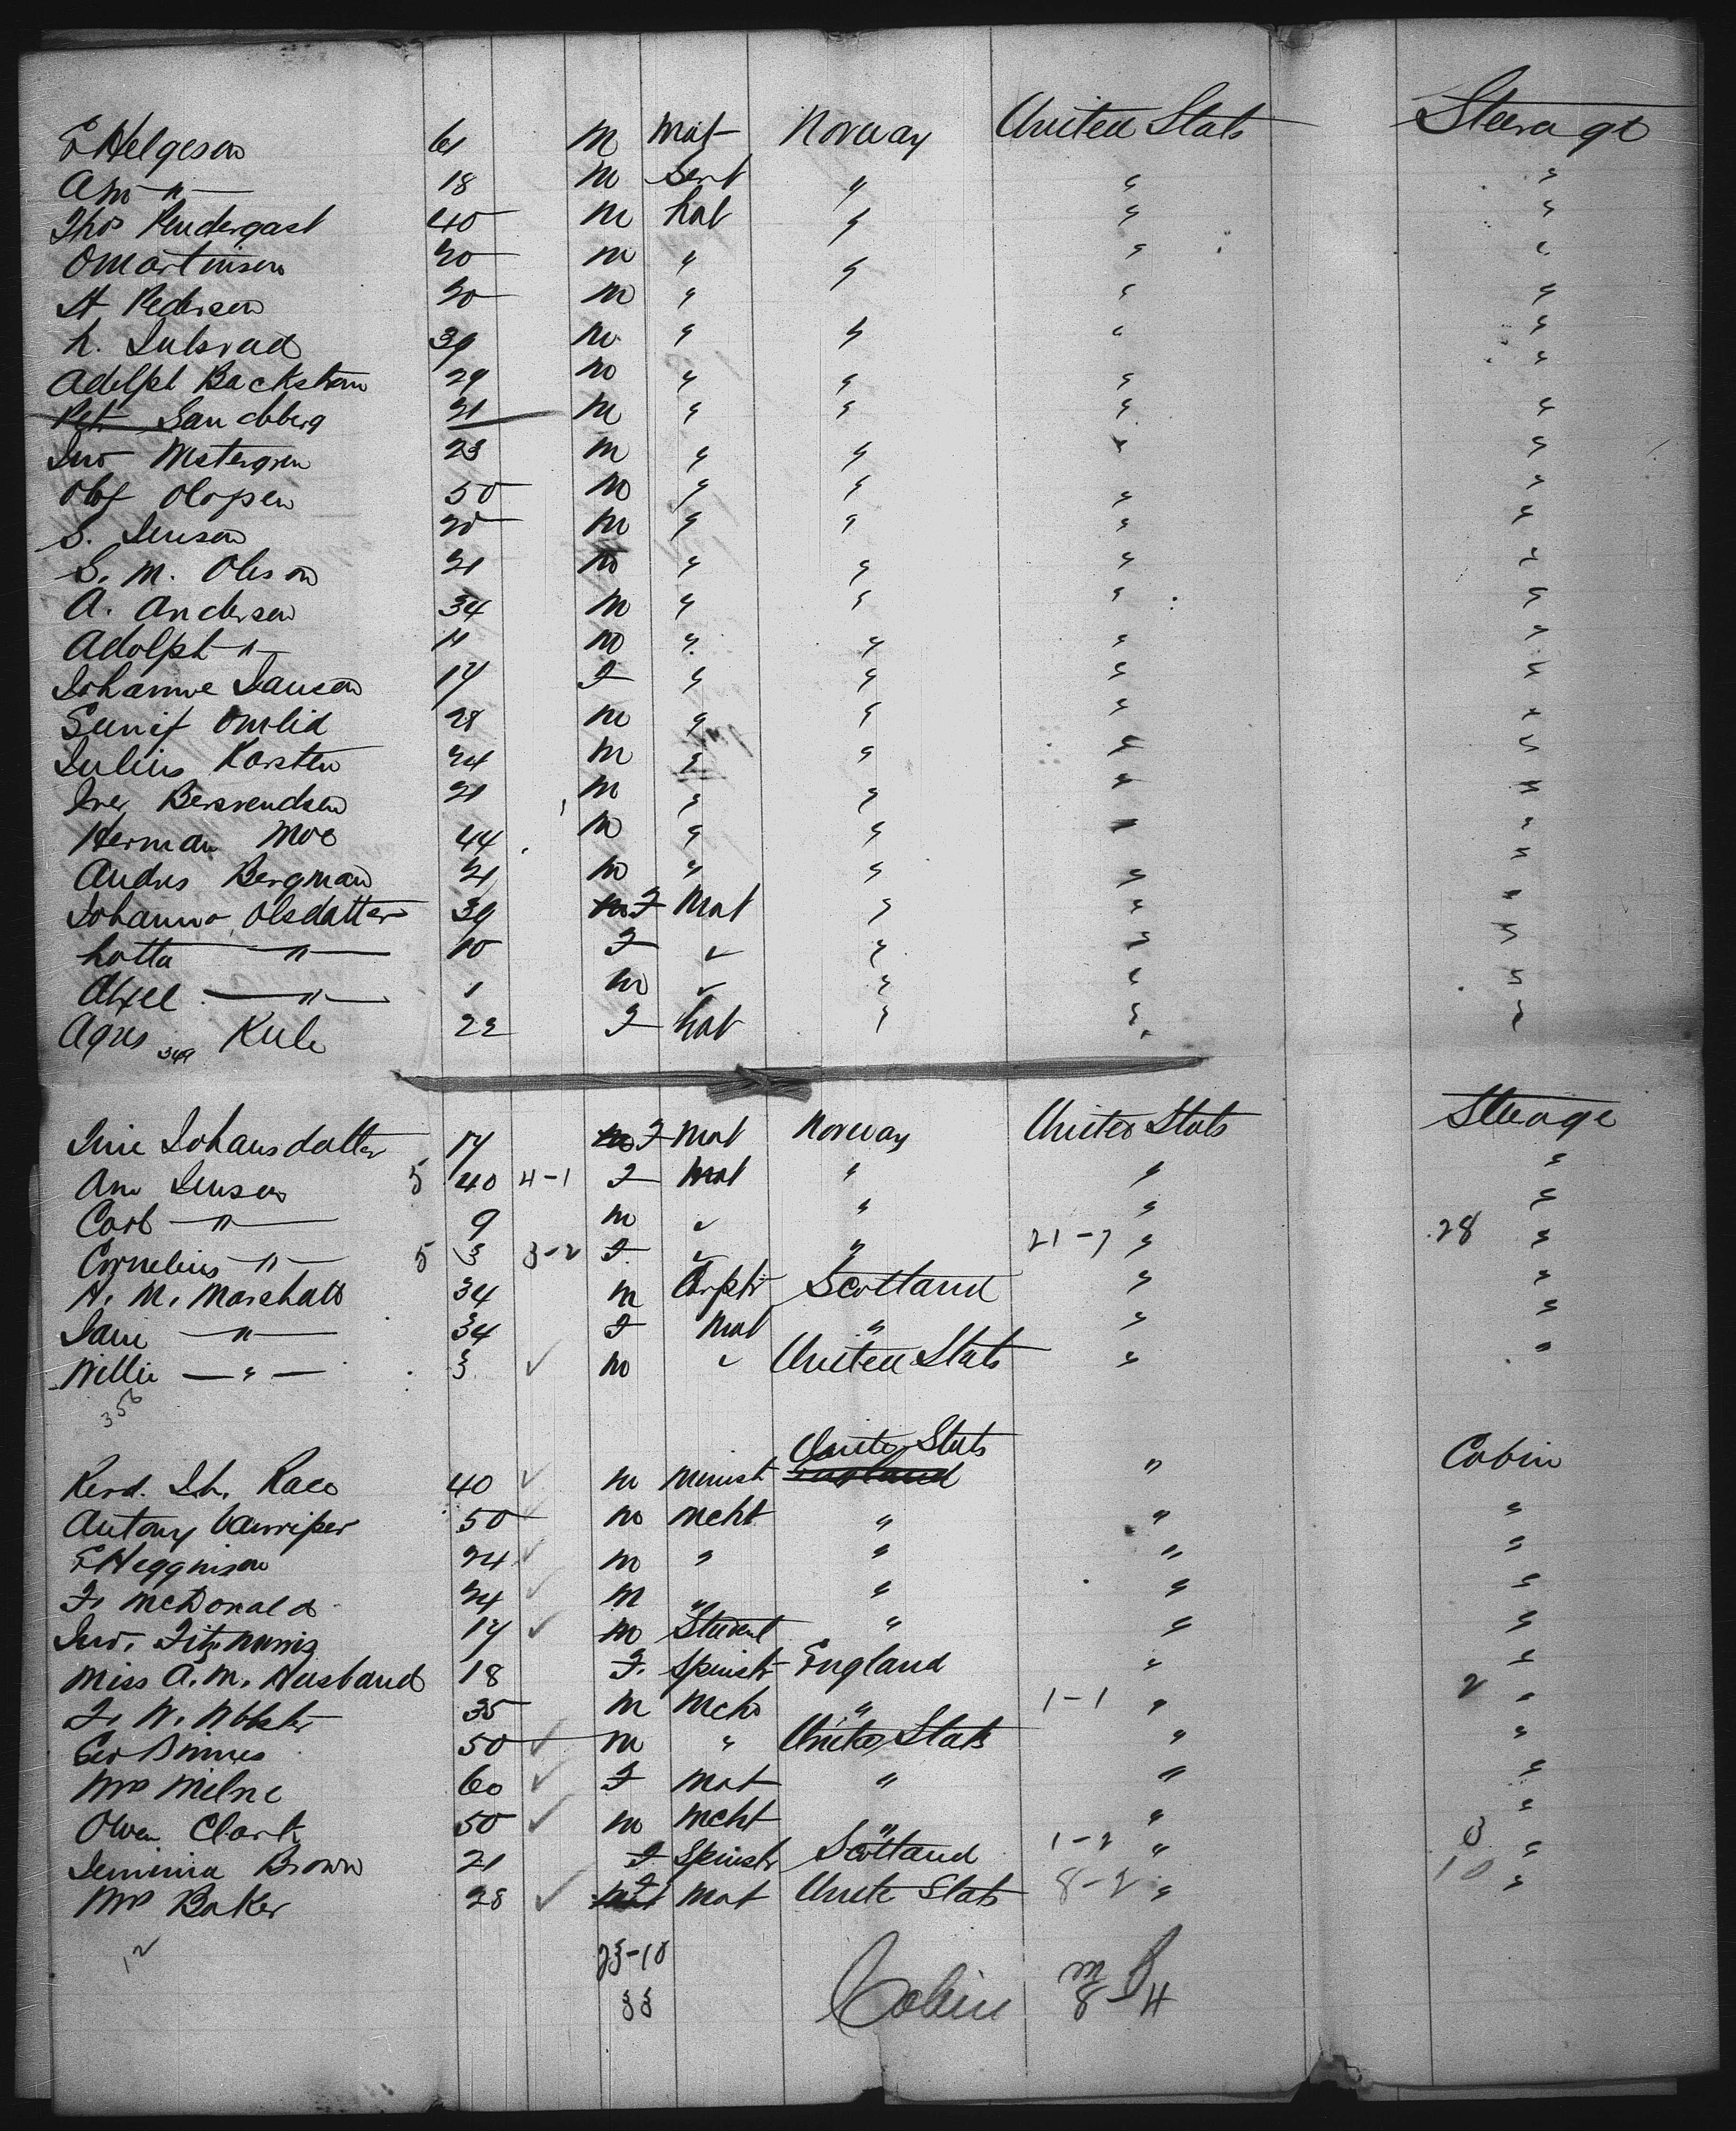 E Helgeson 61 M Mat Norway United Stats Steerage
Am " 18 M Serv " " "
Thos Pendergast 40 M Lab " " "
O Martinson 20 M " " " "
A Pedersen 20 M " " "
L. Lulsrad 39 M " " " "
Adolph Backstrom 29 M " " " "
Pet Sandberg 21 M " " " "
Jno Westergren 23 M " " " "
Olof Olopsen 50 M " " " "
S. Jenson 20 M " " " "
S. M. Oleson 21 M " " " "
A. Andersen 34 M " " " "
Adolph " 11 M " " " "
Johanne Jansen 17 F " " " "
Omlid 28 M " " " "
Julius Karsten 24 M " " " "
Iver Bersvendsen 21 M " " " "
Herman Moe 44 M " " " "
Andrs Bergman 21 M " " " "
Johanna Olsdatter 39 F Mat " " "
Lotta " 10 F " " " "
Axel " 1 M " " " "
Agns Kule 22 F Lab " " "
349
Johansdatter 17 F Mat Norway United Stats Steerage
Ane Jensen 5 40 4-1 F Mat " " "
Carl " 9 M " " " "
Cornelius " 5 3 3-2 F " " 21-7 " 28 "
A. M. Marshall 34 M Carptr Scotland " "
Jane " 34 F Mat " " "
Willie " 3 M " United Stats " "
356
Revd. Jh. Race 40 M Minist United Stats England " Cabin
Antony Vanriper 50 M Mcht " " "
E Hegginson 24 M " " " "
F. McDonald 24 M " " " "
Jno. Fitzmorris 17 M Student " " "
Miss A. M. Husband 18 F. Spinstr England " "
F. W. Webster 35 M Mcht " 1-1 " 2 "
Geo Binnes 50 M " United Stats " "
Mrs Milne 60 F Mat " " "
Owen Clark 50 M Mcht " " "
Jemima Brown 21 F Spinstr Scotland 1-2 " 3 "
Mrs Baker 28 F Mat Unite Stats 8-2 " 10 "
12
23-10
33
Cabin